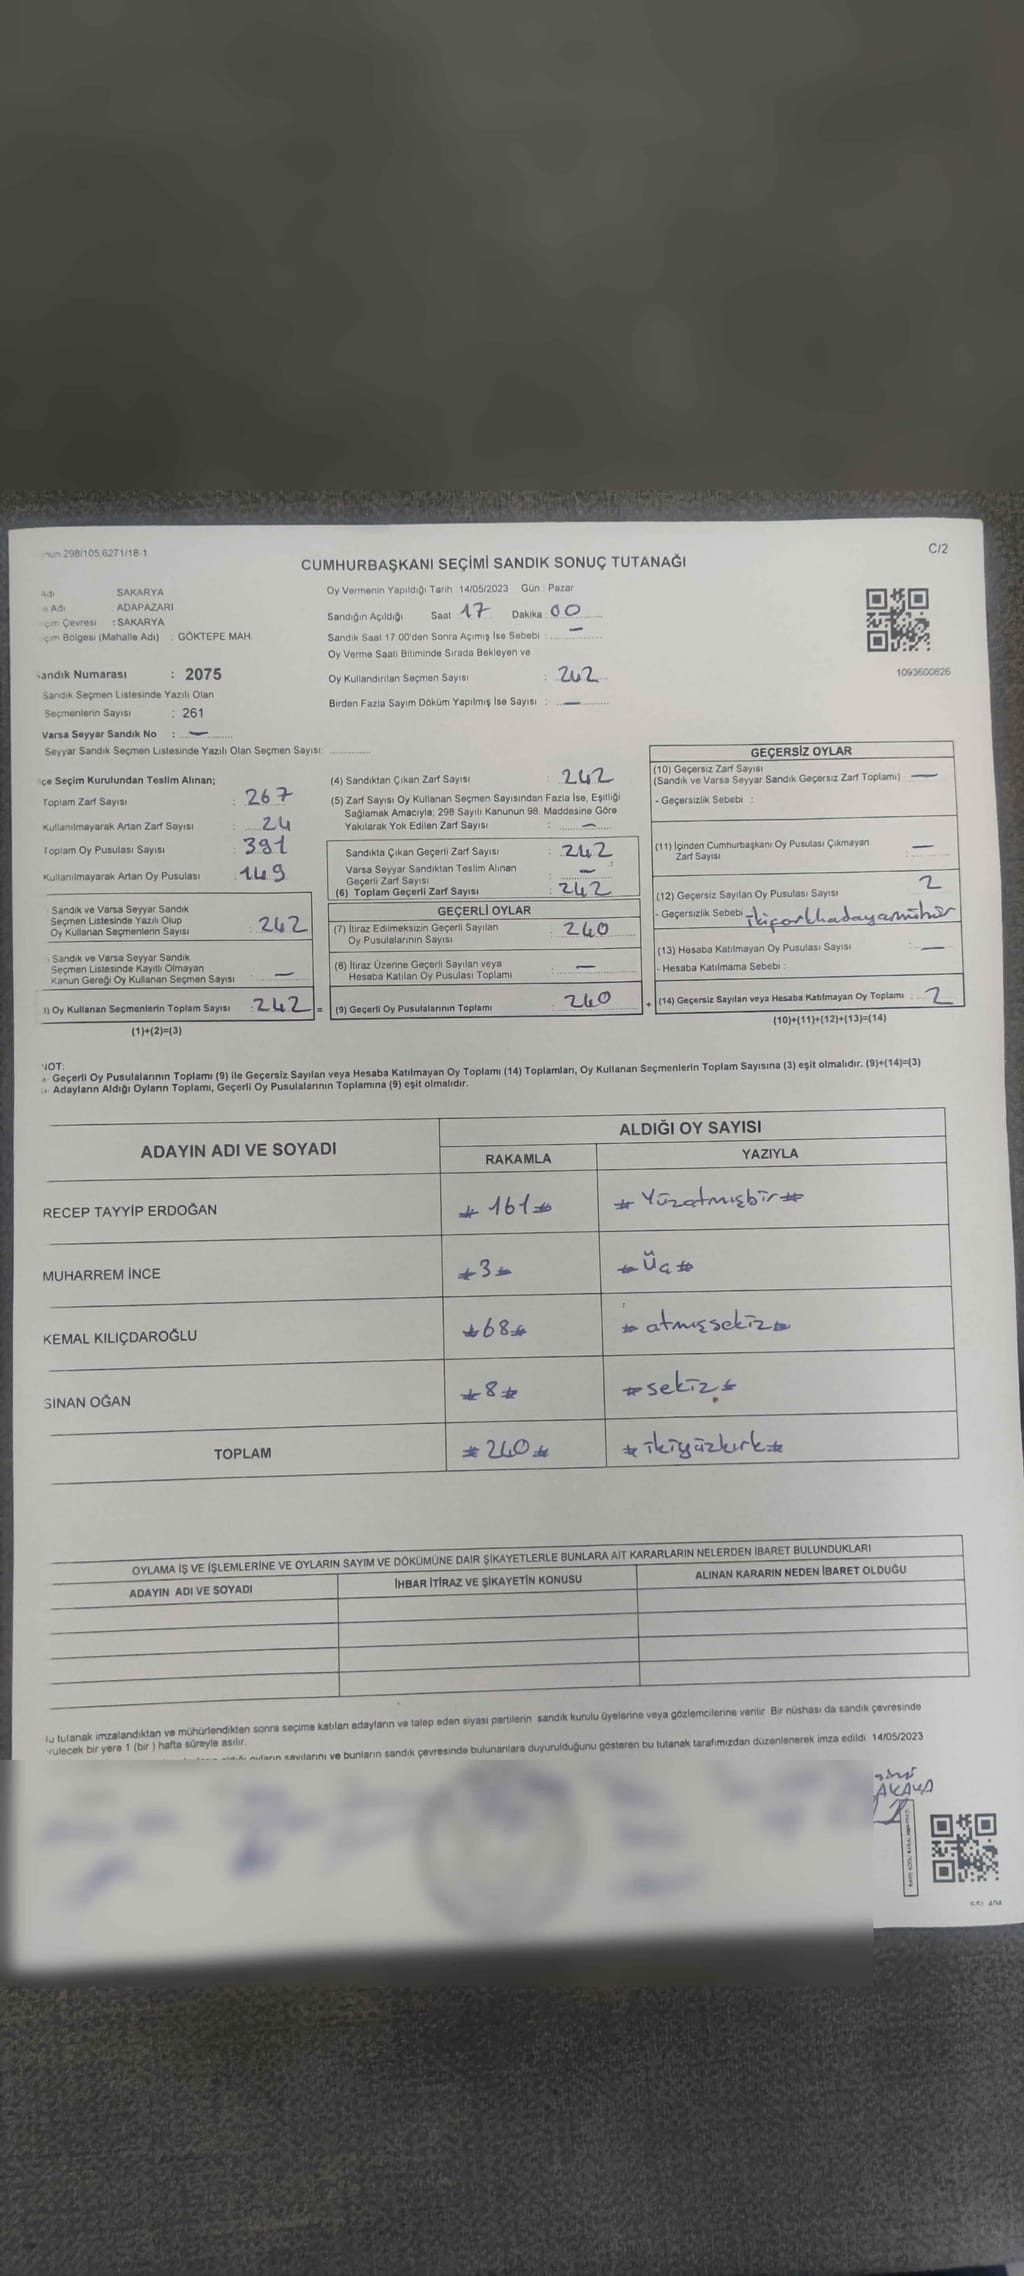 298/105,6271/18-1
C/2
CUMHURBAŞKANI SEÇİMİ SANDIK SONUÇ TUTANAĞI
Adı SAKARYA
Adı ADAPAZARI
Çevresi : SAKARYA
Bölgesi (Mahalle Adı) : GÖKTEPE MAH.
Sandık Numarası : 2075
Sandık Seçmen Listesinde Yazılı Olan
Seçmenlerin Sayısı : 261
Varsa Seyyar Sandık No : —
Seyyar Sandık Seçmen Listesinde Yazılı Olan Seçmen Sayısı:
Oy Vermenin Yapıldığı Tarih : 14/05/2023 Gün : Pazar
Sandığın Açıldığı Saat 17 Dakika : 00
Sandık Saat 17:00'den Sonra Açımış İse Sebebi : —
Oy Verme Saati Bitiminde Sırada Bekleyen ve
Oy Kullandırılan Seçmen Sayısı : 242
Birden Fazla Sayım Döküm Yapılmış İse Sayısı : —
1093600826
Seçim Kurulundan Teslim Alınan;
Toplam Zarf Sayısı : 267
Kullanılmayarak Artan Zarf Sayısı : 24
Toplam Oy Pusulası Sayısı : 391
Kullanılmayarak Artan Oy Pusulası : 149
Sandık ve Varsa Seyyar Sandık
Seçmen Listesinde Yazılı Olup
Oy Kullanan Seçmenlerin Sayısı : 242
Sandık ve Varsa Seyyar Sandık
Seçmen Listesinde Kayıtlı Olmayan
Kanun Gereği Oy Kullanan Seçmen Sayısı : —
3) Oy Kullanan Seçmenlerin Toplam Sayısı : 242 =
(1)+(2)=(3)
(4) Sandıktan Çıkan Zarf Sayısı : 242
(5) Zarf Sayısı Oy Kullanan Seçmen Sayısından Fazla İse, Eşitliği
Sağlamak Amacıyla, 298 Sayılı Kanunun 98. Maddesine Göre
Yakılarak Yok Edilen Zarf Sayısı : —
Sandıkta Çıkan Geçerli Zarf Sayısı : 242
Varsa Seyyar Sandıktan Teslim Alınan
Geçerli Zarf Sayısı : —
(6) Toplam Geçerli Zarf Sayısı : 242
GEÇERLİ OYLAR
(7) İtiraz Edilmeksizin Geçerli Sayılan
Oy Pusulalarının Sayısı : 240
(8) İtiraz Üzerine Geçerli Sayılan veya
Hesaba Katılan Oy Pusulası Toplamı : —
(9) Geçerli Oy Pusulalarının Toplamı : 240 +
GEÇERSİZ OYLAR
(10) Geçersiz Zarf Sayısı
(Sandık ve Varsa Seyyar Sandık Geçersiz Zarf Toplamı) —
- Geçersizlik Sebebi :
(11) İçinden Cumhurbaşkanı Oy Pusulası Çıkmayan
Zarf Sayısı : —
(12) Geçersiz Sayılan Oy Pusulası Sayısı 2
- Geçersizlik Sebebi : iki farklı adaya mühür
(13) Hesaba Katılmayan Oy Pusulası Sayısı —
- Hesaba Katılmama Sebebi :
(14) Geçersiz Sayılan veya Hesaba Katılmayan Oy Toplamı : 2
(10)+(11)+(12)+(13)=(14)
NOT:
Geçerli Oy Pusulalarının Toplamı (9) ile Geçersiz Sayılan veya Hesaba Katılmayan Oy Toplamı (14) Toplamları, Oy Kullanan Seçmenlerin Toplam Sayısına (3) eşit olmalıdır. (9)+(14)=(3)
Adayların Aldığı Oyların Toplamı, Geçerli Oy Pusulalarının Toplamına (9) eşit olmalıdır.
ADAYIN ADI VE SOYADI
ALDIĞI OY SAYISI
RAKAMLA YAZIYLA
RECEP TAYYİP ERDOĞAN # 161 # # Yüzatmışbir #
MUHARREM İNCE # 3 # # Üç #
KEMAL KILIÇDAROĞLU # 68 # # atmışsekiz #
SİNAN OĞAN # 8 # # sekiz #
TOPLAM # 240 # # ikiyüzkırk #
OYLAMA İŞ VE İŞLEMLERİNE VE OYLARIN SAYIM VE DÖKÜMÜNE DAİR ŞİKAYETLERLE BUNLARA AİT KARARLARIN NELERDEN İBARET BULUNDUKLARI
ADAYIN ADI VE SOYADI İHBAR İTİRAZ VE ŞİKAYETİN KONUSU ALINAN KARARIN NEDEN İBARET OLDUĞU
tutanak imzalandıktan ve mühürlendikten sonra seçime katılan adayların ve talep eden siyasi partilerin sandık kurulu üyelerine veya gözlemcilerine verilir. Bir nüshası da sandık çevresinde
bir yere 1 (bir ) hafta süreyle asılır.
oyların sayılarını ve bunların sandık çevresinde bulunanlara duyurulduğunu gösteren bu tutanak tarafımızdan düzenlenerek imza edildi. 14/05/2023